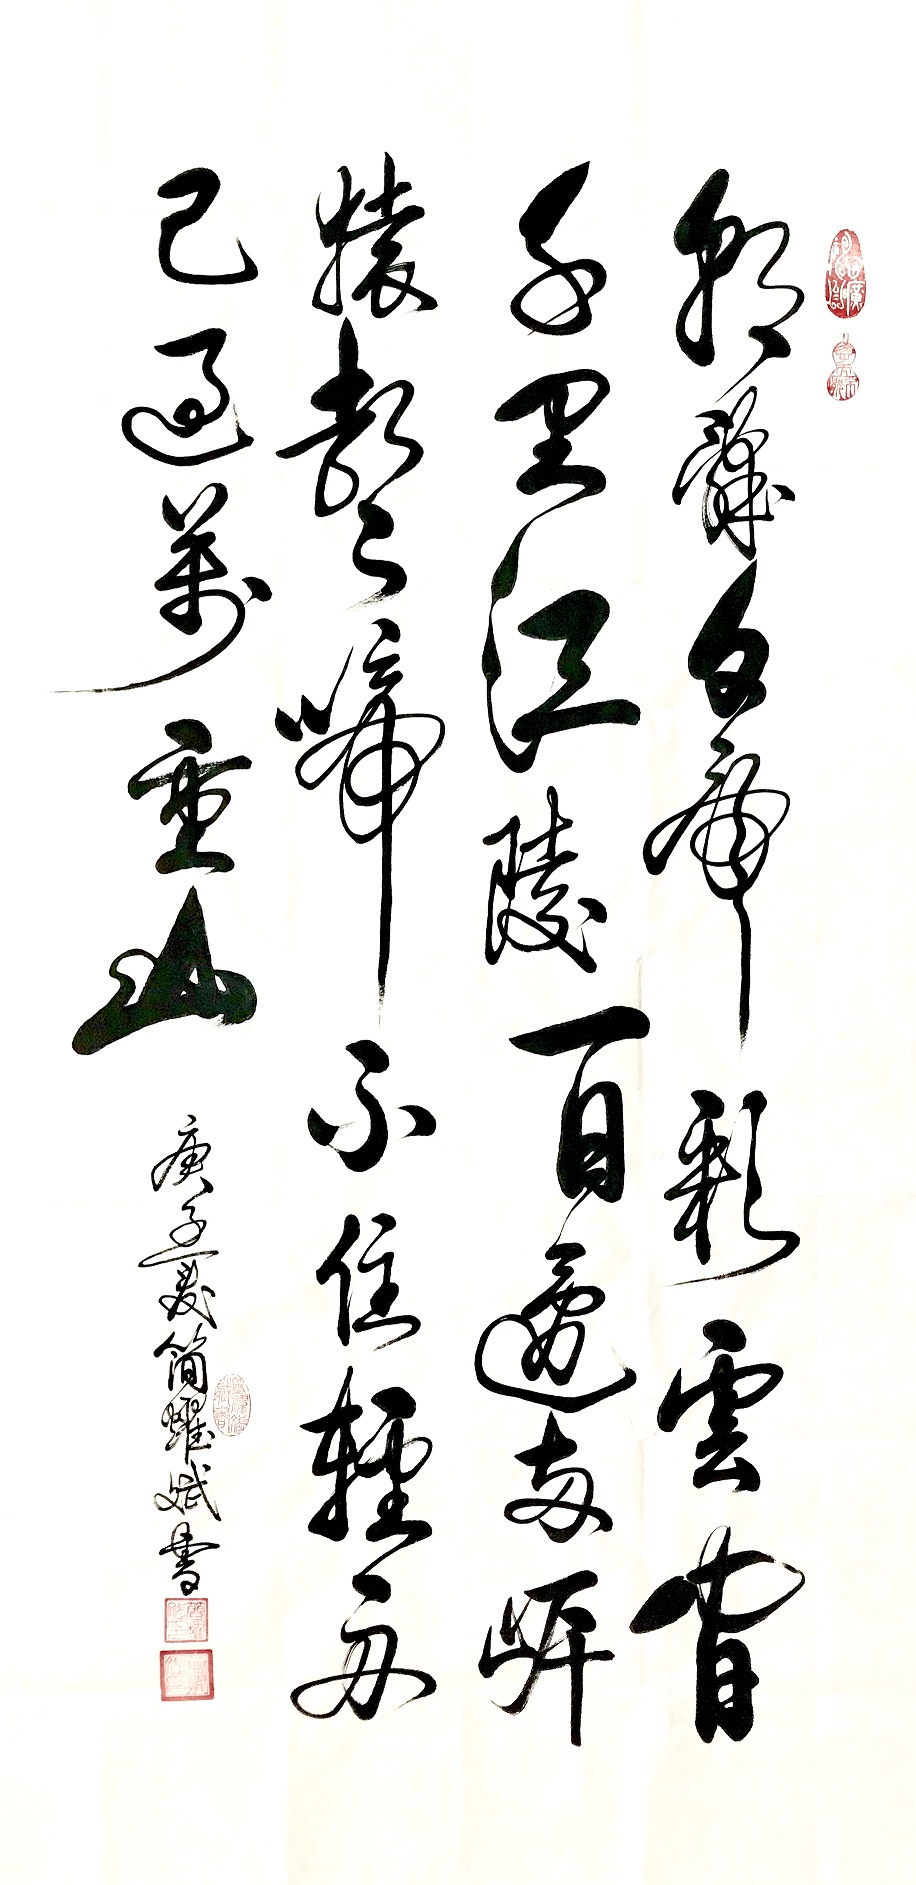 朝辭白帝彩雲間
千里江陵一日還兩岸
猿聲啼不住輕舟
已過萬重山
庚子夏简耀斌書